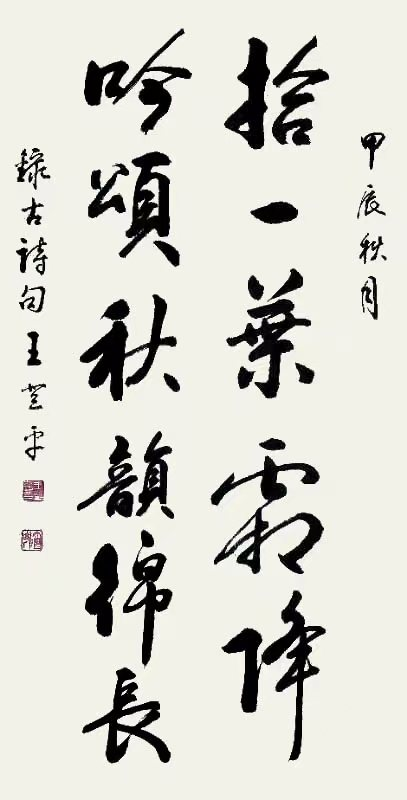 甲辰秋月
拾一葉霜降
吟頌秋韻綿長
錄古詩句王芒平